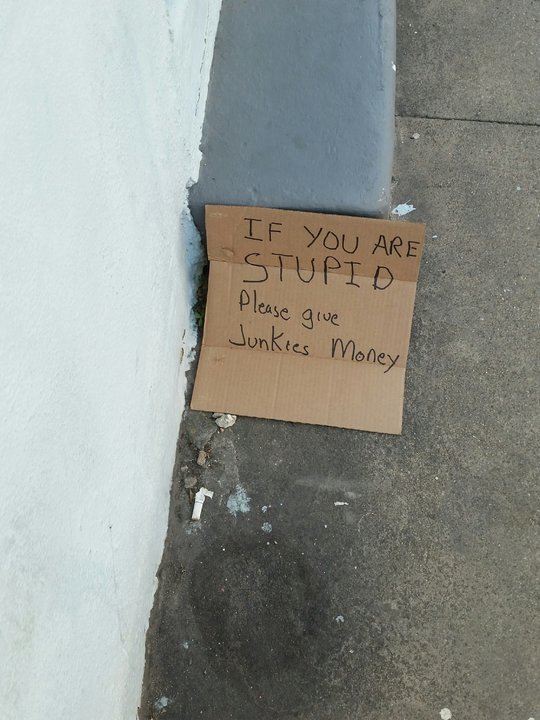 IF YOU ARE
STUPID
Please give
Junkies Money